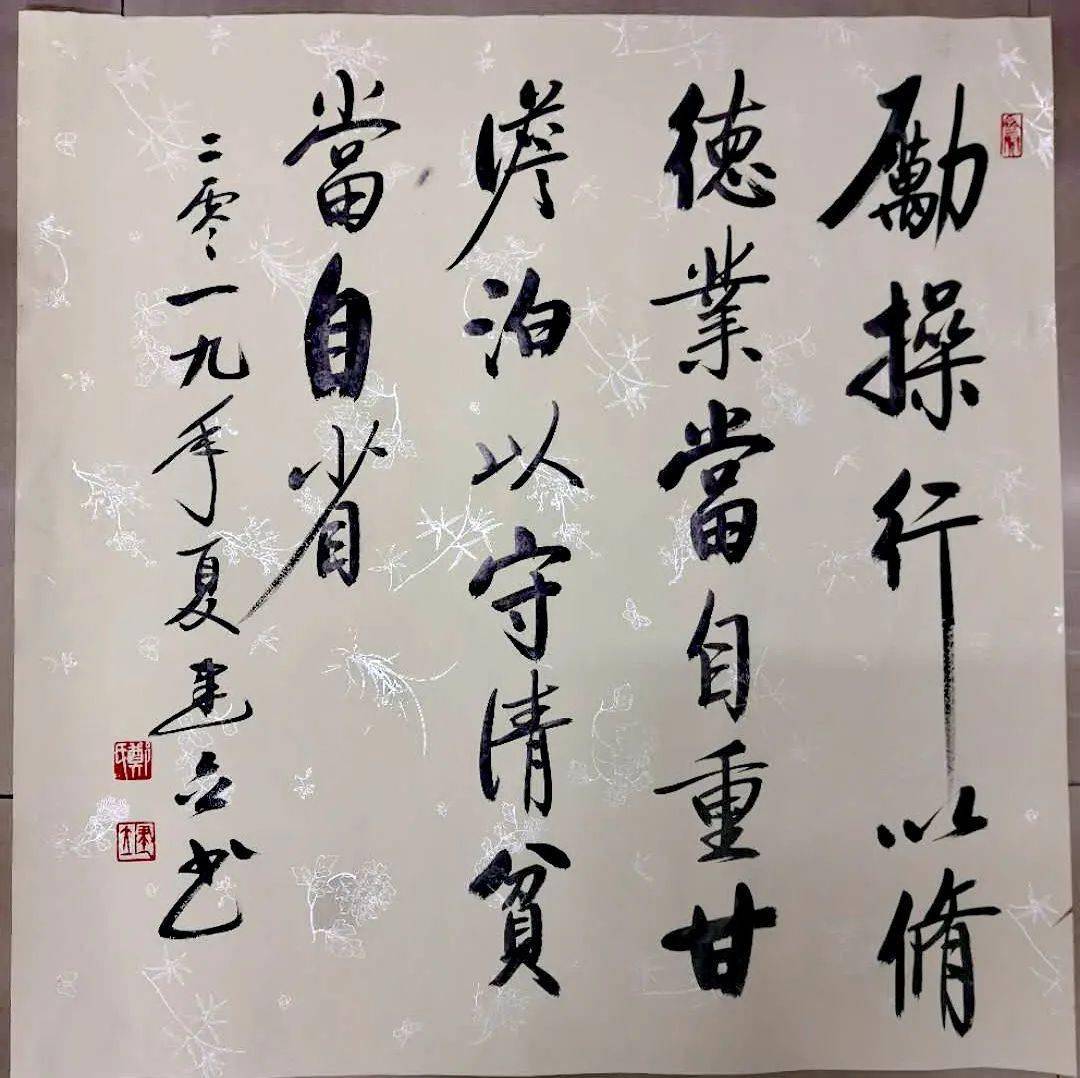 勵操行以脩
德業當自重甘
澹泊以守清貧
當自省
二零一九年夏建立书
鄭氏
建立